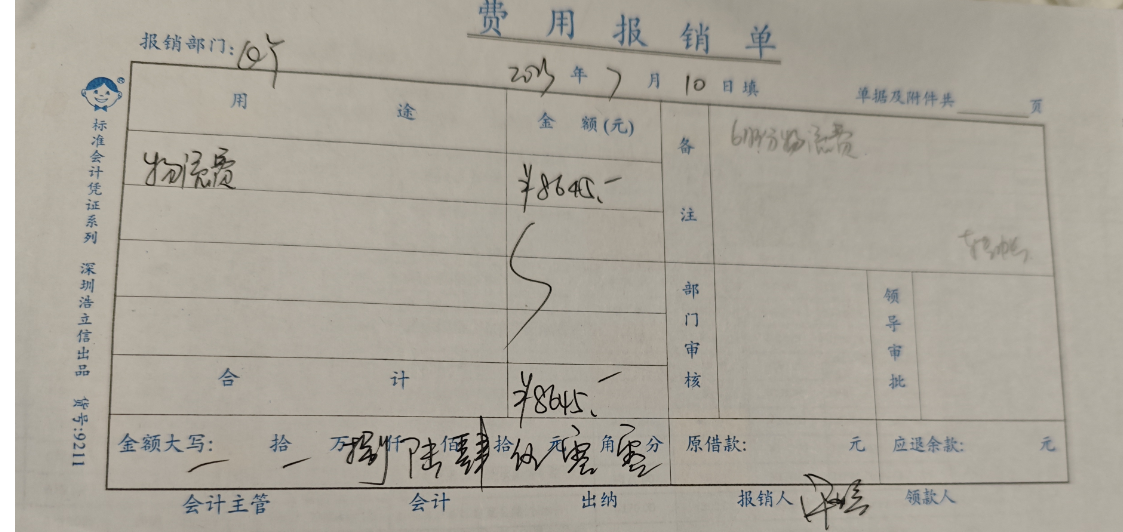 费用报销单
报销部门:
2023年7月10日填
单据及附件共 页
用途
金额(元)
备注
6月份物流费
物流费
¥8645.-
部门审核
领导审批
合计
¥8645.-
金额大写: 拾 万捌仟陆佰肆拾伍元零角零分
原借款: 元
应退余款: 元
会计主管
会计
出纳
报销人
领款人
标准会计凭证系列 深圳浩立信出品 货号:9211